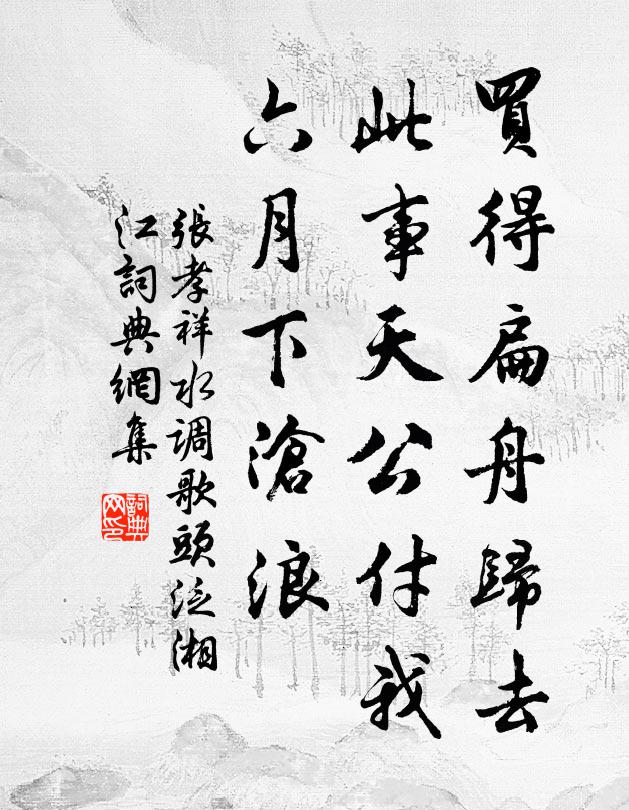 買得扁舟歸去
此事天公付我
六月下滄浪
張孝祥水调歌頭泛湘
江詞典網集
詞典
网印